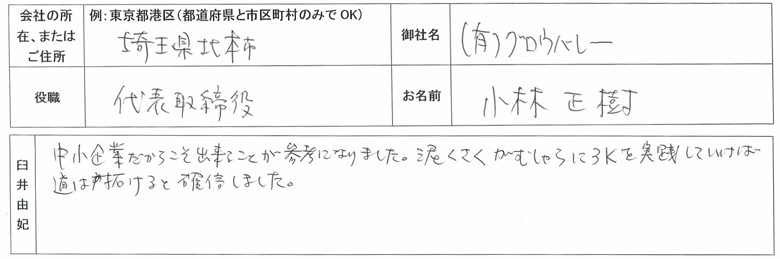 会社の所在、またはご住所
例：東京都港区（都道府県と市区町村のみでOK）
埼玉県北本市
御社名
(有)グロウバレー
役職
代表取締役
お名前
小林 正樹
臼井由妃
中小企業だからこそ出来ることが参考になりました。泥くさくがむしゃらに3Kを実践していけば
道は拓けると確信しました。